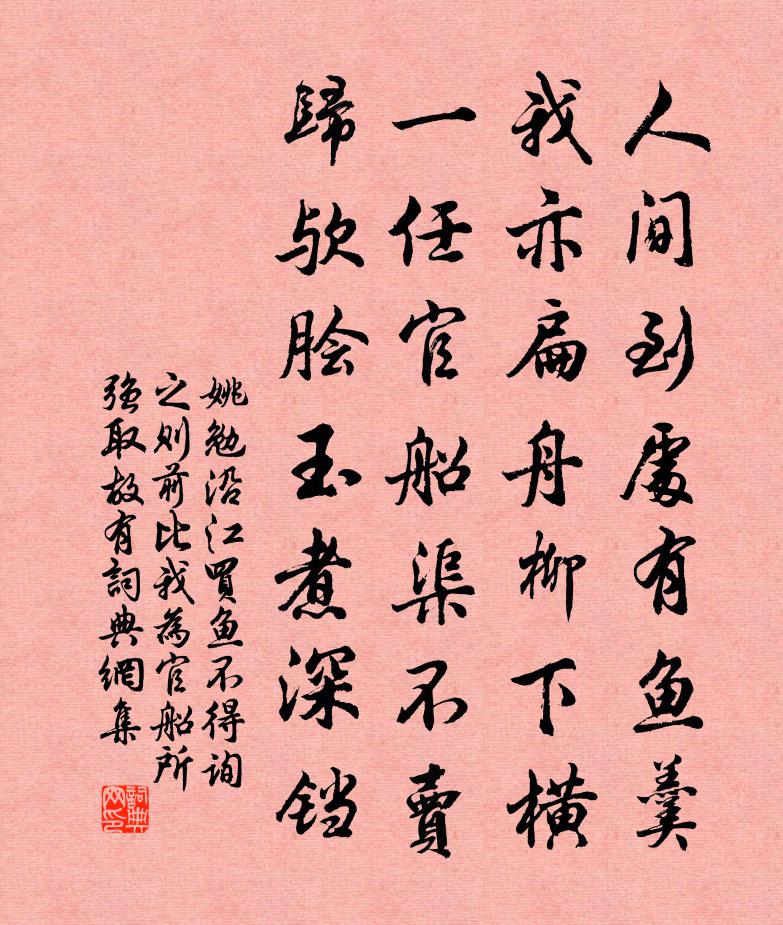 人间到處有鱼羹
我亦扁舟柳下横
一任官船渠不賣
歸欤脍玉煮深铛
姚勉沿江買鱼不得询
之则前比我為官船所
强取故有詞典網集
詞典网印